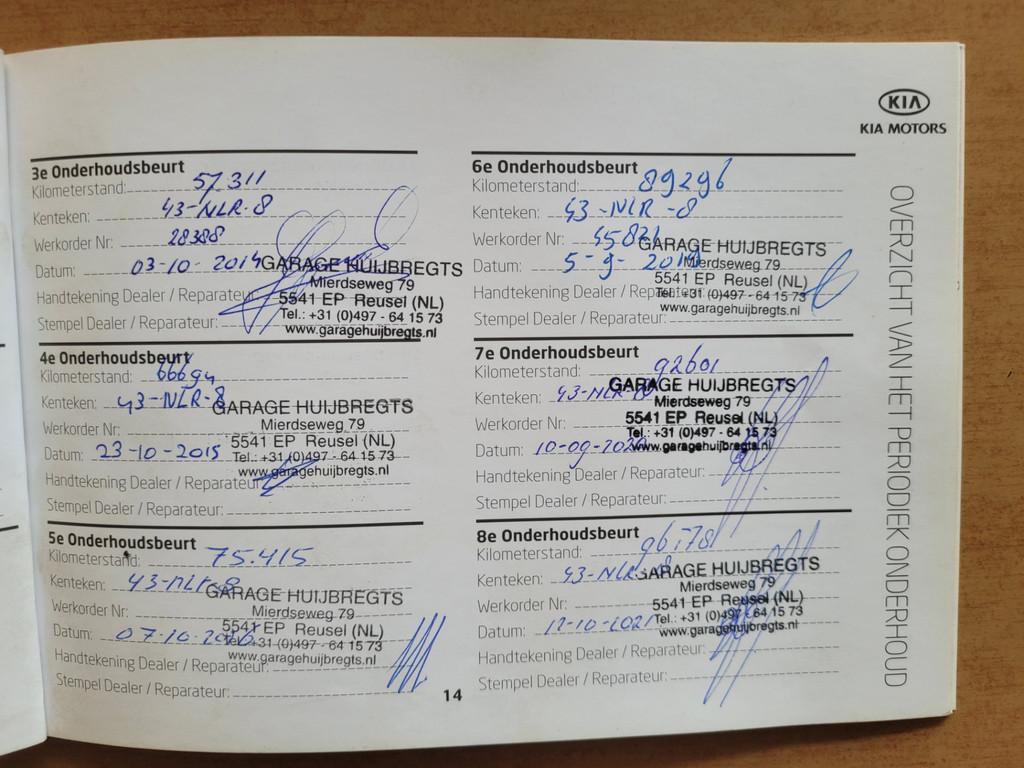 KIA
KIA MOTORS
OVERZICHT VAN HET PERIODIEK ONDERHOUD
3e Onderhoudsbeurt
Kilometerstand: 57.311
Kenteken: 43-NLR-8
Werkorder Nr: 28388
Datum: 03-10-2014
GARAGE HUIJBREGTS
Mierdseweg 79
Handtekening Dealer / Reparateur:
5541 EP Reusel (NL)
Tel.: +31 (0)497 - 64 15 73
Stempel Dealer / Reparateur:
www.garagehuijbregts.nl
4e Onderhoudsbeurt
Kilometerstand: 66694
Kenteken: 43-NLR-8
GARAGE HUIJBREGTS
Mierdseweg 79
Werkorder Nr:
5541 EP Reusel (NL)
Datum: 23-10-2015
Tel.: +31 (0)497 - 64 15 73
www.garagehuijbregts.nl
Handtekening Dealer / Reparateur:
Stempel Dealer / Reparateur:
5e Onderhoudsbeurt
Kilometerstand: 75.415
Kenteken: 43-NLR-8
GARAGE HUIJBREGTS
Mierdseweg 79
Werkorder Nr:
5541 EP Reusel (NL)
Datum: 07-10-2016
Tel.: +31 (0)497 - 64 15 73
www.garagehuijbregts.nl
Handtekening Dealer / Reparateur:
Stempel Dealer / Reparateur:
6e Onderhoudsbeurt
Kilometerstand: 89296
Kenteken: 43-NLR-8
Werkorder Nr:
GARAGE HUIJBREGTS
Mierdseweg 79
Datum: 5-9-2019
5541 EP Reusel (NL)
Handtekening Dealer / Reparateur:
Tel.: +31 (0)497 - 64 15 73
www.garagehuijbregts.nl
Stempel Dealer / Reparateur:
7e Onderhoudsbeurt
Kilometerstand: 92601
Kenteken: 43-NLR-8
GARAGE HUIJBREGTS
Mierdseweg 79
Werkorder Nr:
5541 EP Reusel (NL)
Tel.: +31 (0)497 - 64 15 73
Datum: 10-09-2020
www.garagehuijbregts.nl
Handtekening Dealer / Reparateur:
Stempel Dealer / Reparateur:
8e Onderhoudsbeurt
Kilometerstand: 96178
Kenteken: 43-NLR-8
GARAGE HUIJBREGTS
Mierdseweg 79
Werkorder Nr:
5541 EP Reusel (NL)
Tel.: +31 (0)497 - 64 15 73
Datum: 12-10-2021
www.garagehuijbregts.nl
Handtekening Dealer / Reparateur:
Stempel Dealer / Reparateur:
14